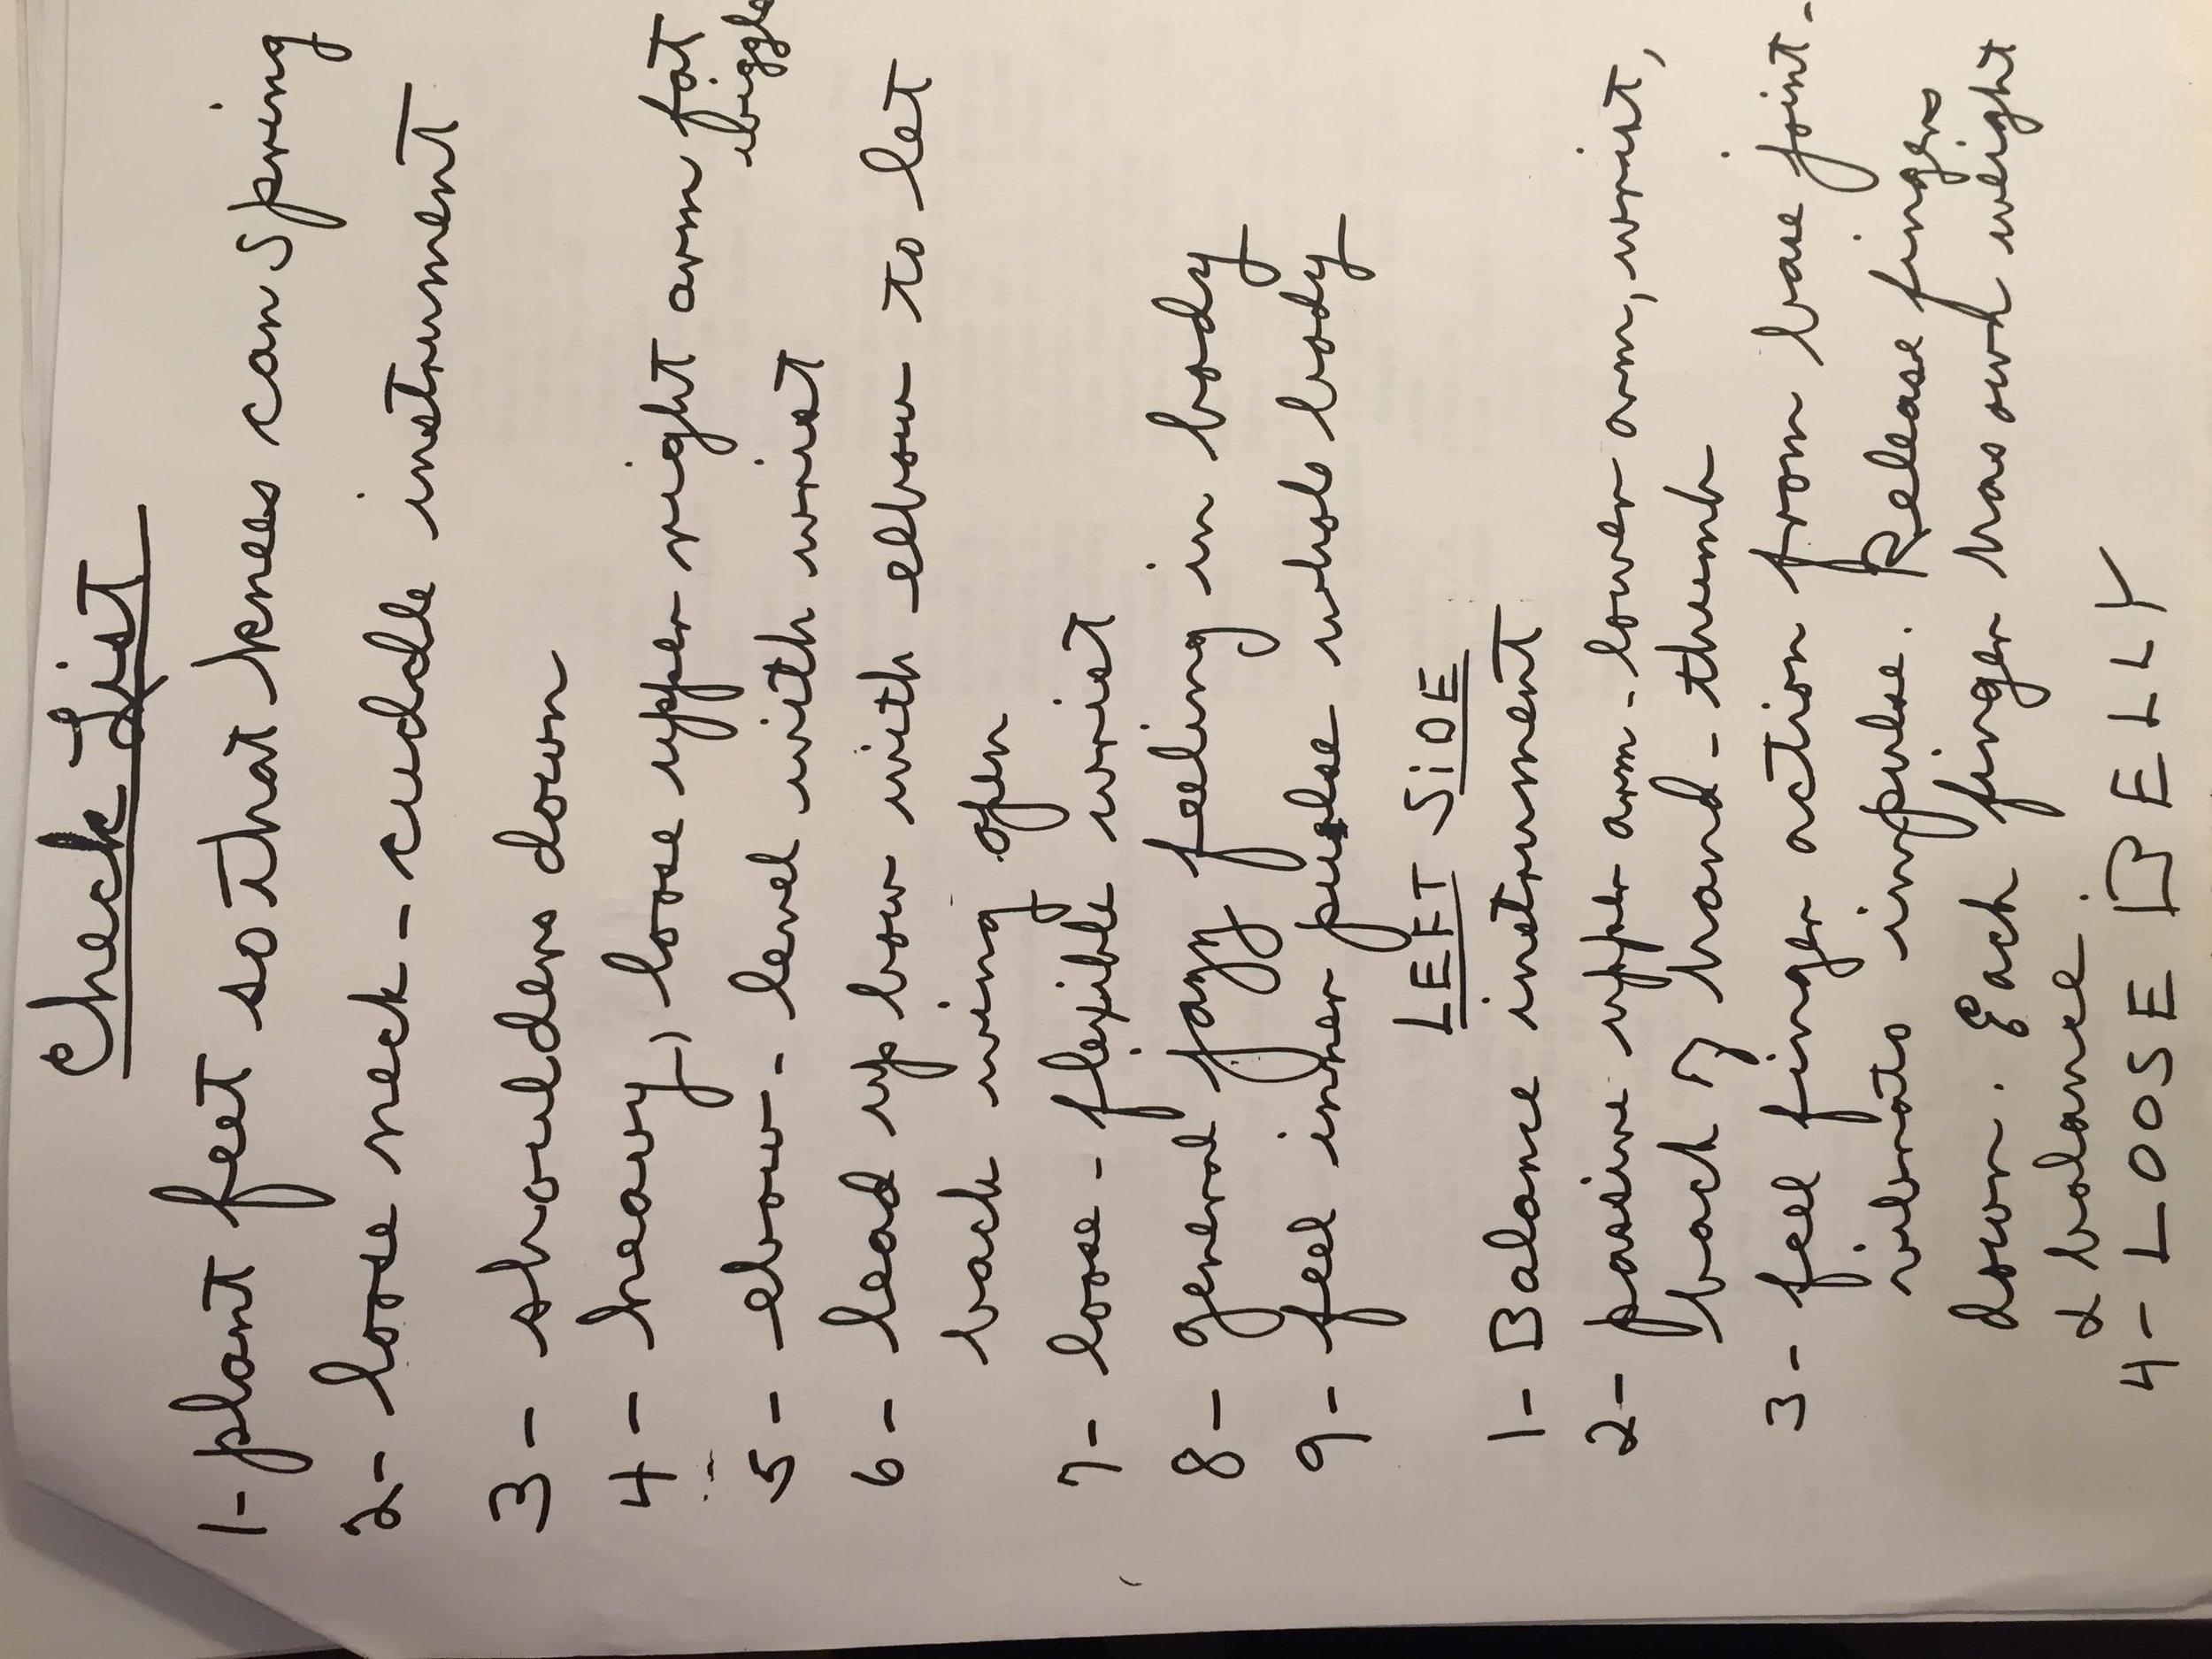 Check List
1- plant feet so that knees can spring
2- loose neck - cuddle instrument
3- shoulders down
4- heavy, loose upper right arm fat
5- elbow - level with wrist
6- lead up bow with elbow to let
back wing open
7- loose - flexible wrist
8- general jazzy feeling in body
9- feel inner pulse whole body
LEFT SIDE
1- Balance instrument
2- passive upper arm - lower arm, wrist,
back of hand - thumb
3- feel finger action from base joint -
vibrato impulse. Release fingers
down. Each finger has own weight
& balance.
4- LOOSE BELLY